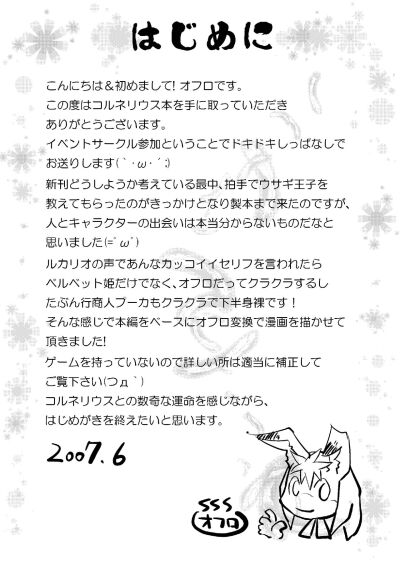 はじめに
こんにちは＆初めまして! オフロです。
この度はコルネリウス本を手に取っていただき
ありがとうございます。
イベントサークル参加ということでドキドキしっぱなしで
お送りします(｀・ω・´;)
新刊どうしようか考えている最中、拍手でウサギ王子を
教えてもらったのがきっかけとなり製本まで来たのですが、
人とキャラクターの出会いは本当分からないものだなと
思いました(=ﾟωﾟ)
ルカリオの声であんなカッコイイセリフを言われたら
ベルベット姫だけでなく、オフロだってクラクラするし
たぶん行商人プーカもクラクラで下半身裸です！
そんな感じで本編をベースにオフロ変換で漫画を描かせて
頂きました!
ゲームを持っていないので詳しい所は適当に補正して
ご覧下さい(つд｀)
コルネリウスとの数奇な運命を感じながら、
はじめがきを終えたいと思います。
2007.6
オフロ